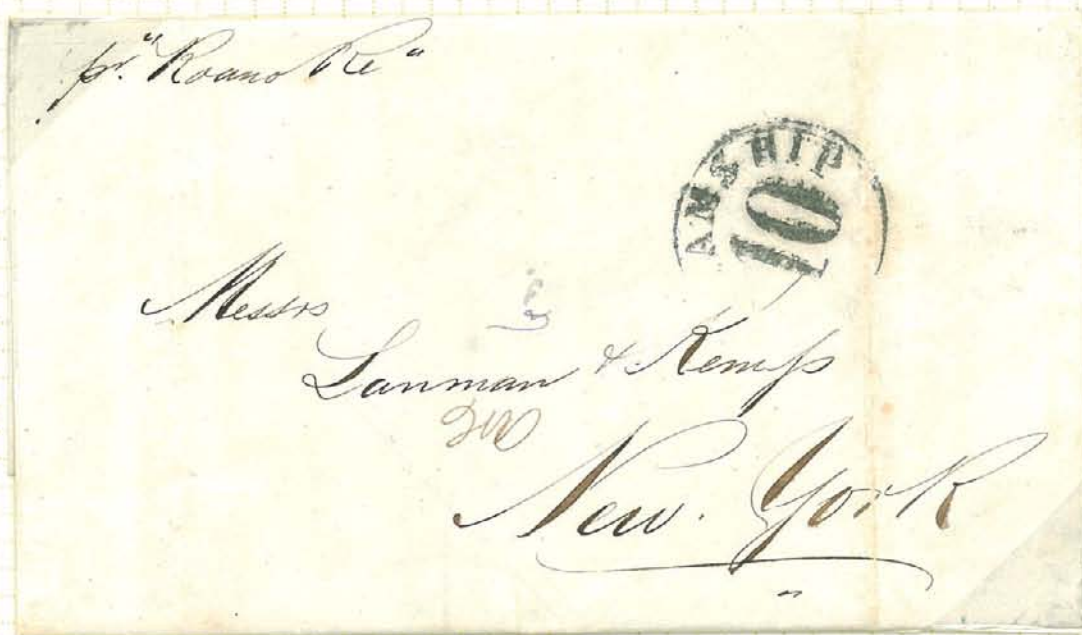 pr. "Roanoke"
AMSHIP
10
Messrs
Lanman & Kemp
New. York